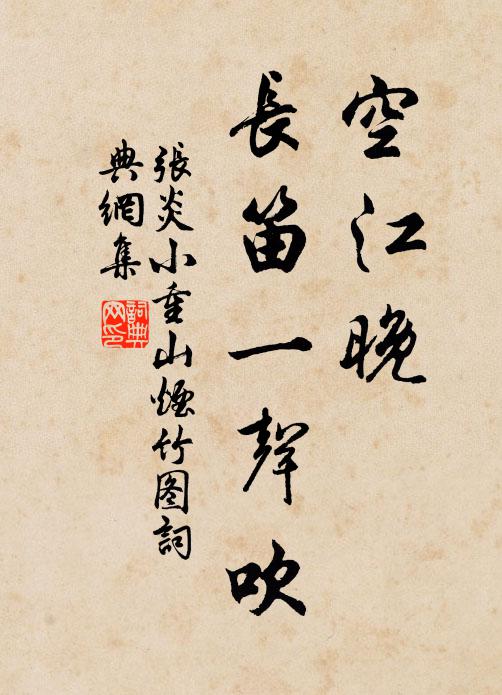 空江晚
長笛一聲吹
張炎小重山煙竹图詞
典網集
詞典网印